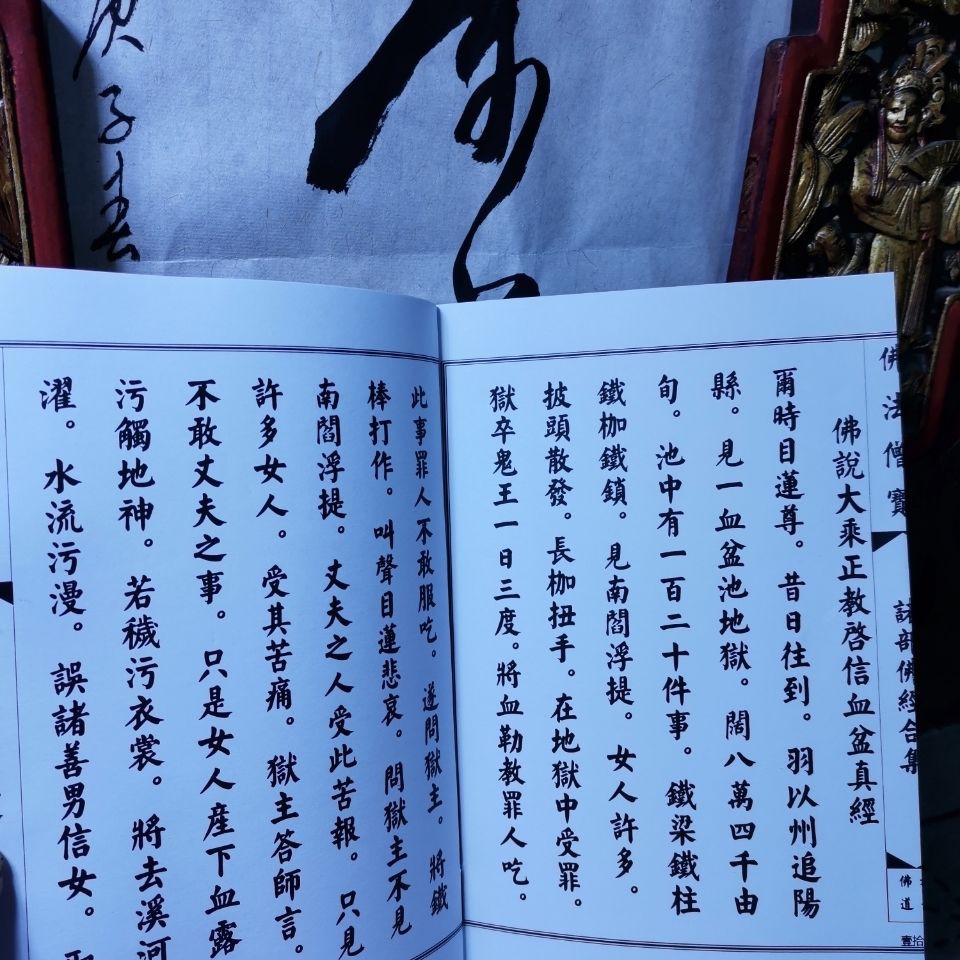 庚子春
佛法僧寶
諸部佛經合集
佛道
壹拾
佛說大乘正教啓信血盆真經
爾時目蓮尊。昔日往到。羽以州追陽
縣。見一血盆池地獄。闊八萬四千由
旬。池中有一百二十件事。鐵梁鐵柱
鐵枷鐵鎖。見南閻浮提。女人許多。
披頭散發。長枷扭手。在地獄中受罪。
獄卒鬼王一日三度。將血勒教罪人吃。
此事罪人不敢服吃。遂問獄主。將鐵
棒打作。叫聲目蓮悲哀。問獄主不見
南閻浮提。丈夫之人受此苦報。只見
許多女人。受其苦痛。獄主答師言。
不敢丈夫之事。只是女人産下血露
污觸地神。若穢污衣裳。將去溪河
濯。水流污漫。誤諸善男信女。